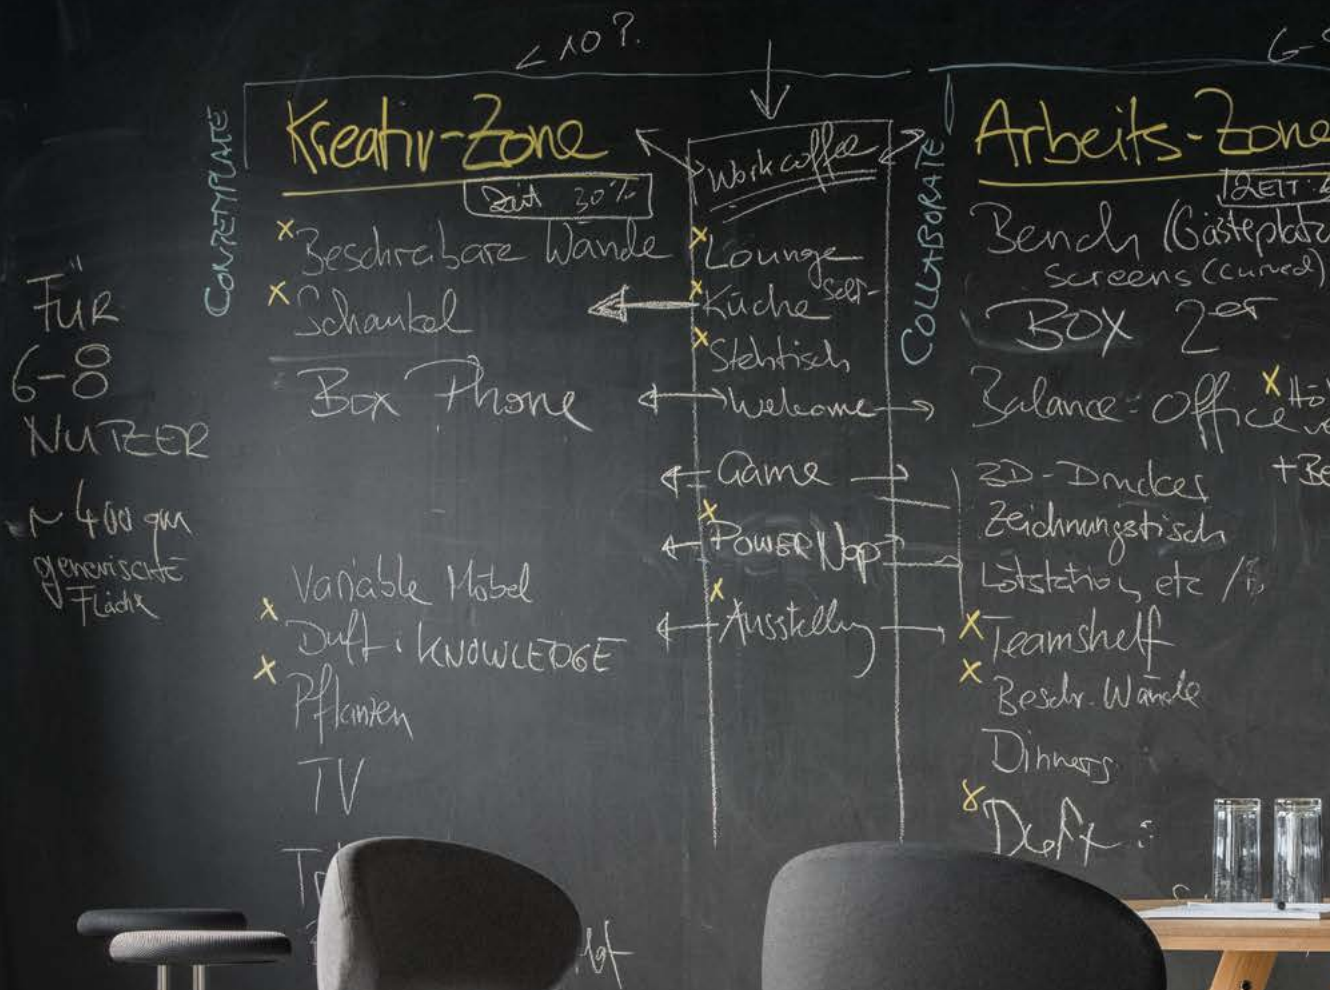 < 10 ?
FÜR
6-8
NUTZER
~ 400 qm
generische
Fläche
CONTEMPLATE
Kreativ-Zone
Zeit 30%
Beschreibbare Wände
Schaukel
Box Phone
Variable Möbel
Duft: KNOWLEDGE
Pflanzen
TV
Workcoffee
Lounge
Küche
Stehtisch
Welcome
Game
POWER Nap
Ausstellung
COLLABORATE
Arbeits-Zone
ZEIT:
Bench (Gästeplatz
screens (curved)
BOX 2er
Balance-Office
3D-Drucker
Zeichnungstisch
Lötstation, etc
Teamshelf
Beschr. Wände
Dinners
Duft: